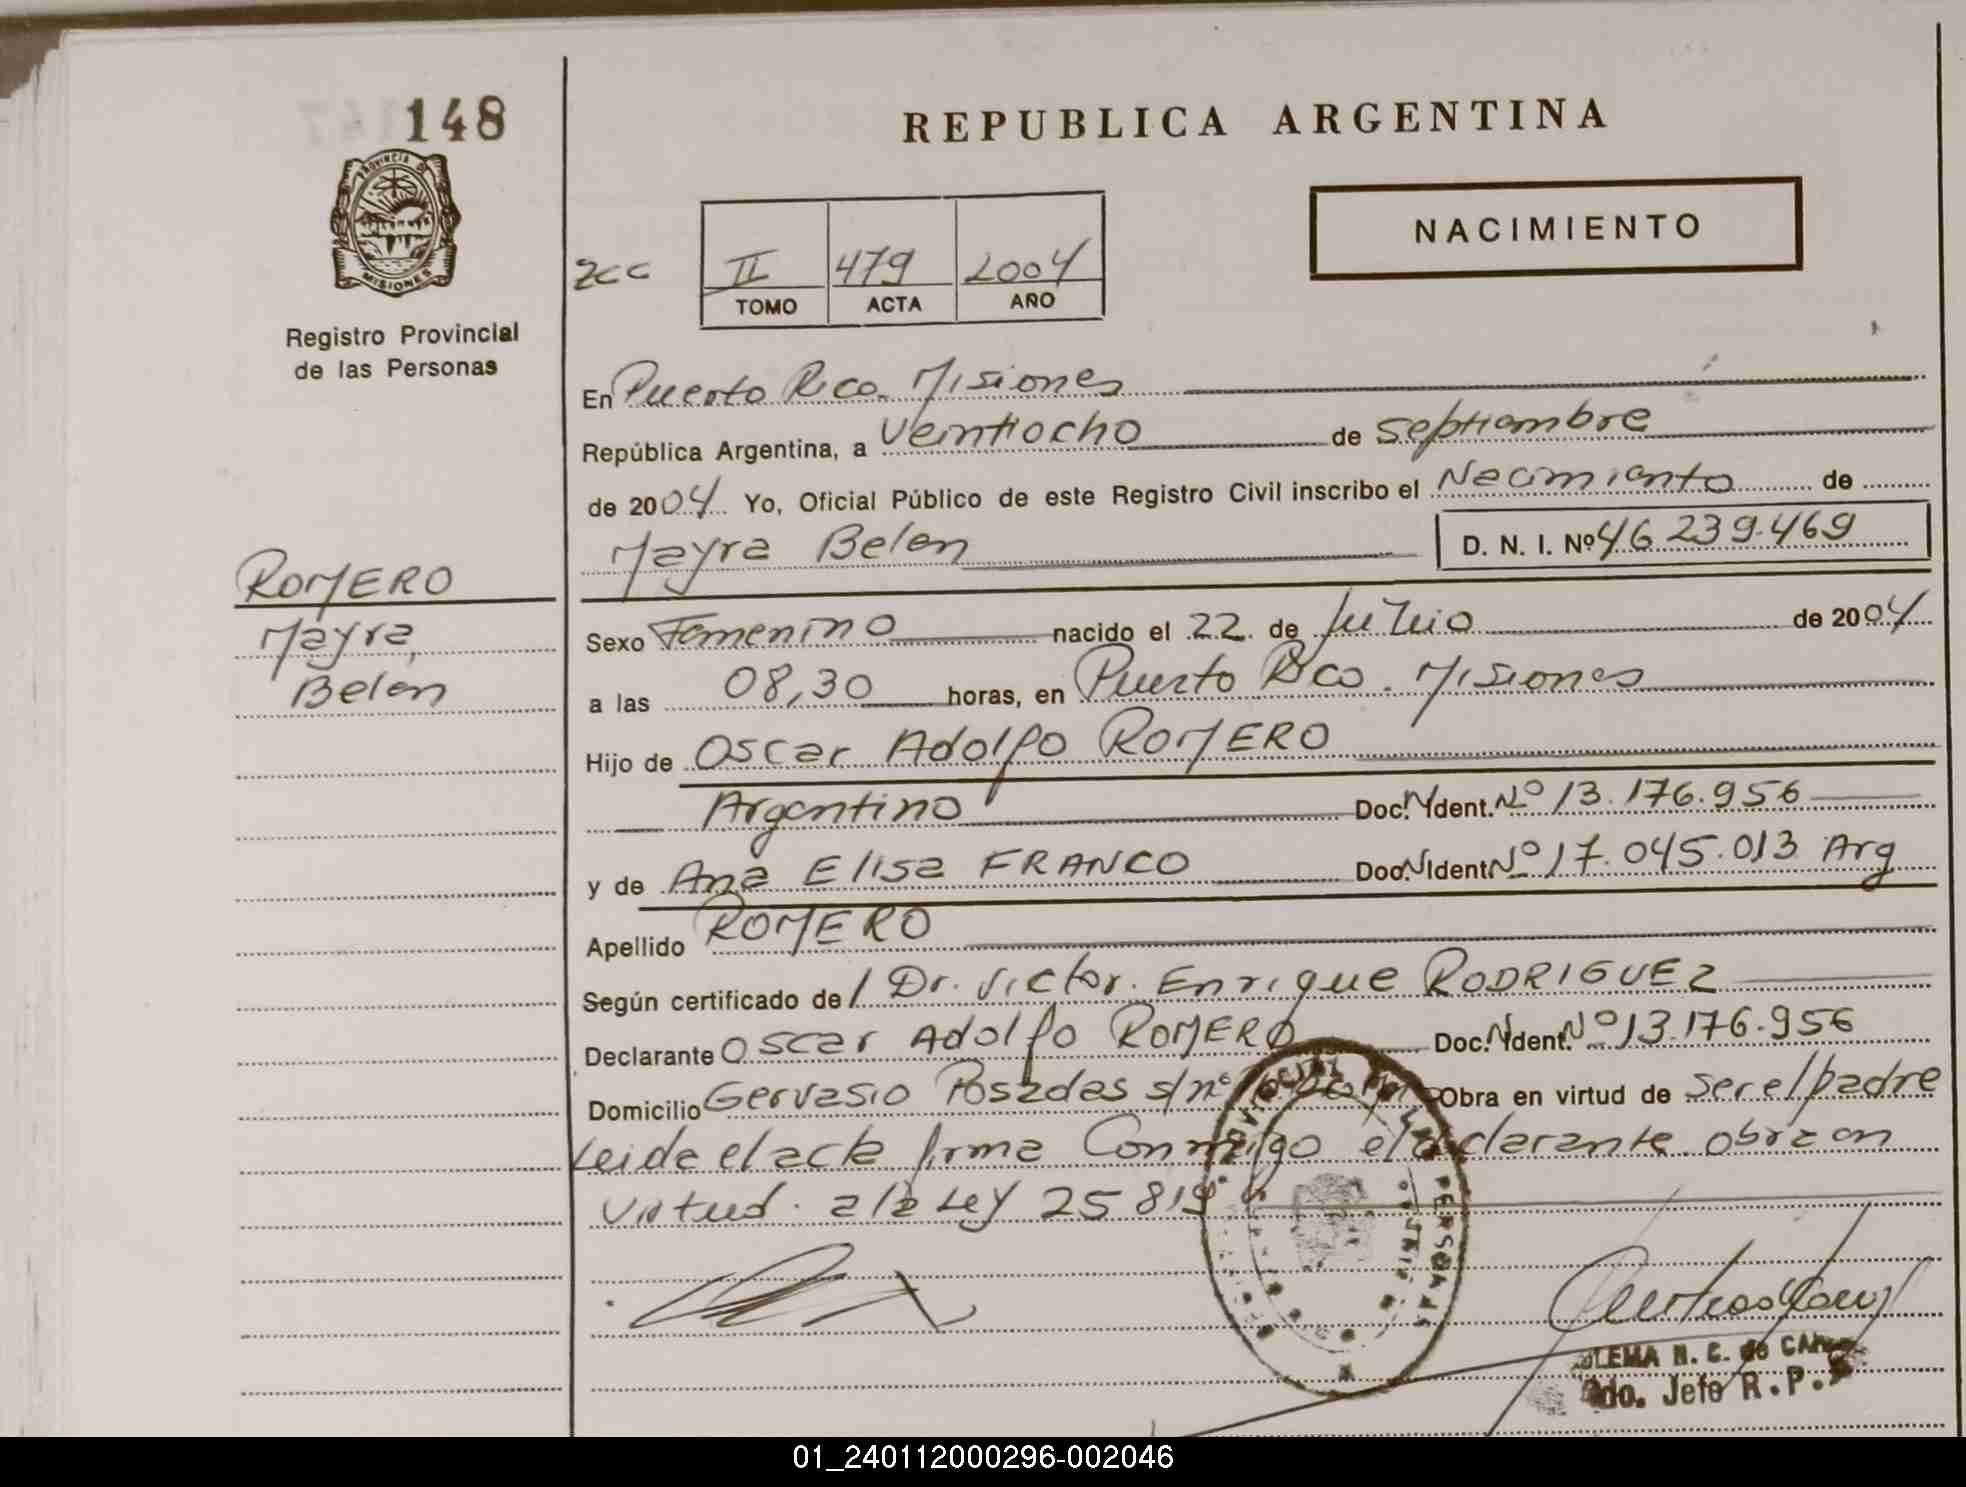 148
PROVINCIA DE
MISIONES
Registro Provincial
de las Personas
ROMERO
Mayra,
Belen
REPUBLICA ARGENTINA
NACIMIENTO
2cc
II 479 2004
TOMO ACTA AÑO
En Puerto Rico. Misiones
República Argentina, a Veintiocho de septiembre
de 2004 Yo, Oficial Público de este Registro Civil inscribo el Nacimiento de
Mayra Belen D. N. I. Nº 46 239.469
Sexo Femenino nacido el 22 de Julio de 2004
a las 08,30 horas, en Puerto Rico. Misiones
Hijo de Oscar Adolfo ROMERO
Argentino Doc. N Ident. Nº 13.176.956
y de Ana Elisa FRANCO Doc. N Ident Nº 17.045.013 Arg
Apellido ROMERO
Según certificado del Dr. Victor. Enrique RODRIGUEZ
Declarante Oscar Adolfo ROMERO Doc. N Ident. Nº 13.176.956
Domicilio Gervasio Posadas s/nº Obra en virtud de ser el padre
Leida el acta firma Conmigo el declarante. obra en
virtud. a la Ley 25 819
PERSONAS
LEMA N. C. de
Jefe R. P.
01_240112000296-002046